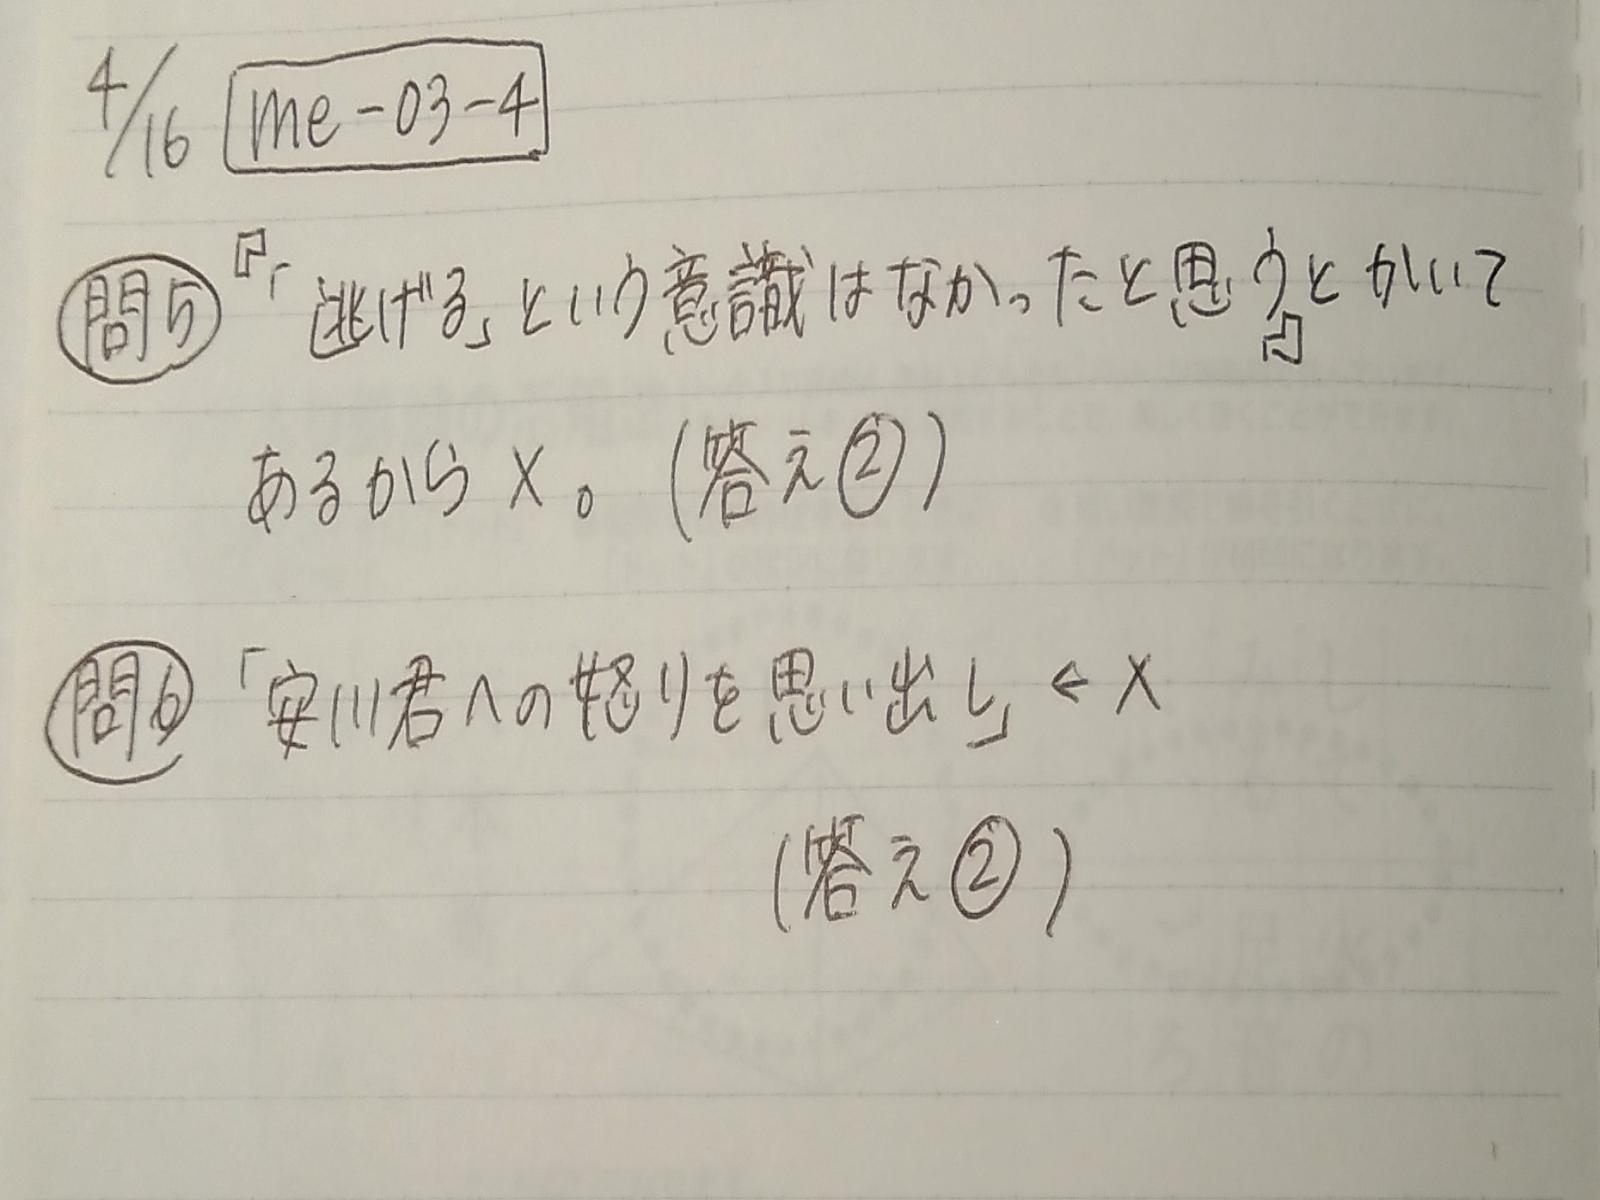 4/16 me-03-4
問5 『「逃げる」という意識はなかったと思う』とかいて
あるから×。(答え②)
問6 「安川君への怒りを思い出し」←×
(答え②)